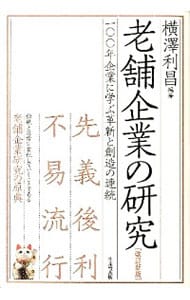 横澤利昌 編著
老舗企業の研究
[改訂新版]
一〇〇年企業に学ぶ革新と創造の連続
先義後利
不易流行
老舗企業研究の原典
生産性出版